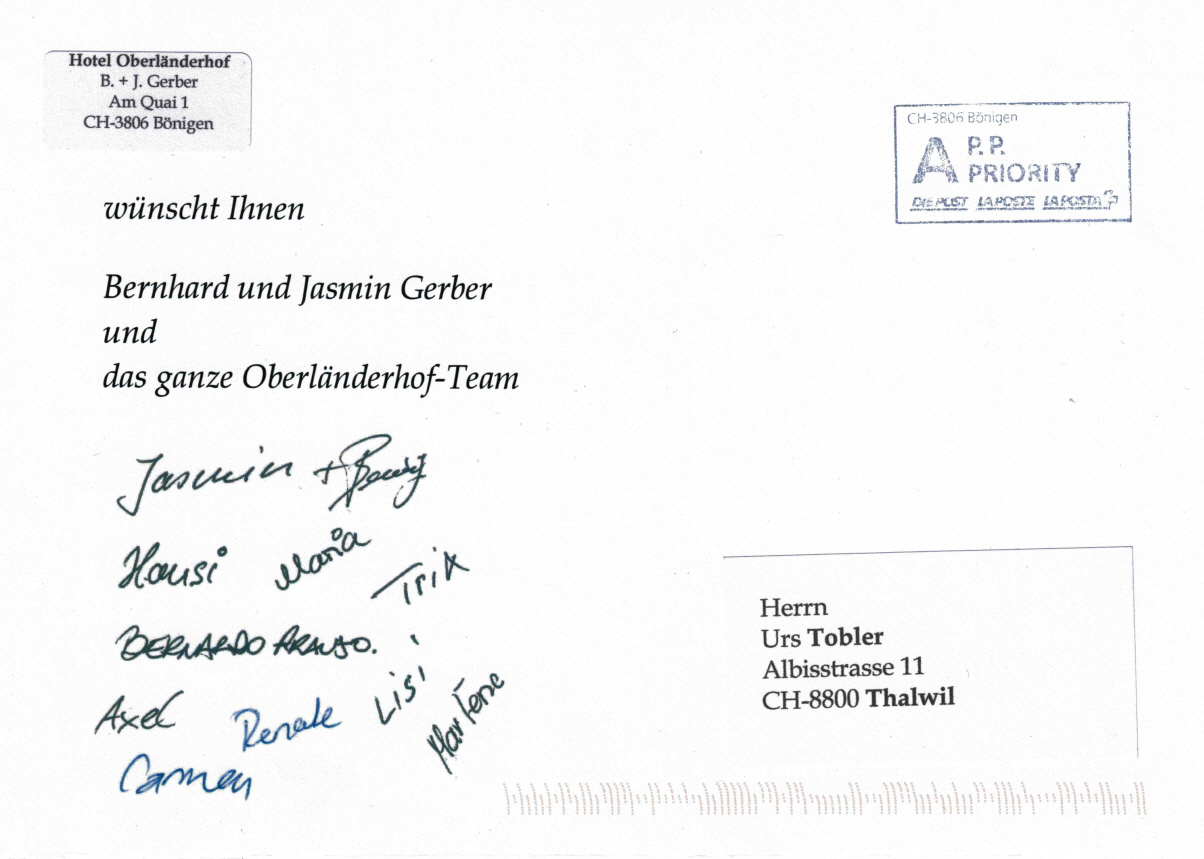 Hotel Oberländerhof
B. + J. Gerber
Am Quai 1
CH-3806 Bönigen
CH-3806 Bönigen
A P.P.
PRIORITY
DIE POST LA POSTE LA POSTA
wünscht Ihnen
Bernhard und Jasmin Gerber
und
das ganze Oberländerhof-Team
Jasmin +
Hansi Maria Trix
BERNARDO ARAUJO.
Axel Renate Lisi
Carmen
Herrn
Urs Tobler
Albisstrasse 11
CH-8800 Thalwil